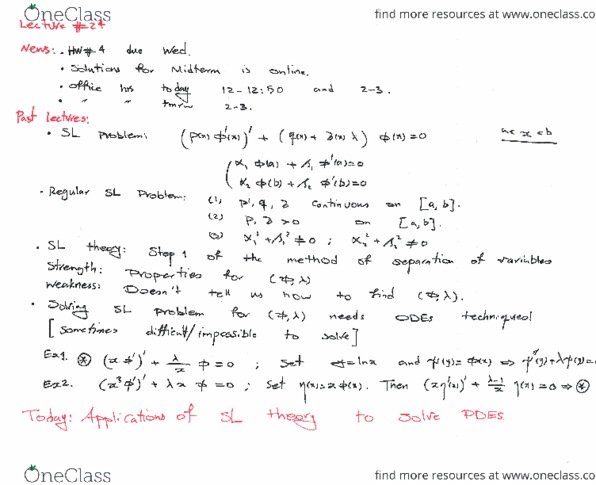 OneClass
find more resources at www.oneclass.co
Lecture #24
News: . HW#4 due Wed.
• Solutions for Midterm is online.
• office hrs today 12-12:50 and 2-3.
• " " tmrw 2-3.
Past lectures:
• SL Problem: (p(x) φ'(x))' + (q(x) + z(x) λ) φ(x) = 0 a < x < b
α₁ φ(a) + β₁ φ'(a) = 0
α₂ φ(b) + β₂ φ'(b) = 0
• Regular SL Problem: (1) p', q, z continuous on [a, b].
(2) p, z > 0 on [a, b].
(3) α₁² + β₁² ≠ 0 ; α₂² + β₂² ≠ 0
• SL theory: Step 1 of the method of separation of variables
Strength: Properties for (φ, λ)
Weakness: Doesn't tell us how to find (φ, λ).
• Solving SL problem for (φ, λ) needs ODEs
[sometimes difficult/impossible to solve]
Ex1. ⊛ (x φ')' + λ/x φ = 0 ; set = ln x and ψ(y) = φ(x) ⇔ ψ''(y) + λψ(y) =
Ex2. (x³ φ')' + λx φ = 0 ; set η(x) = x φ(x). Then (x η'(x))' + (λ-1)/x η(x) = 0 ⇒ ⊛
Today: Applications of SL theory to solve PDEs
OneClass
find more resources at www.oneclass.co